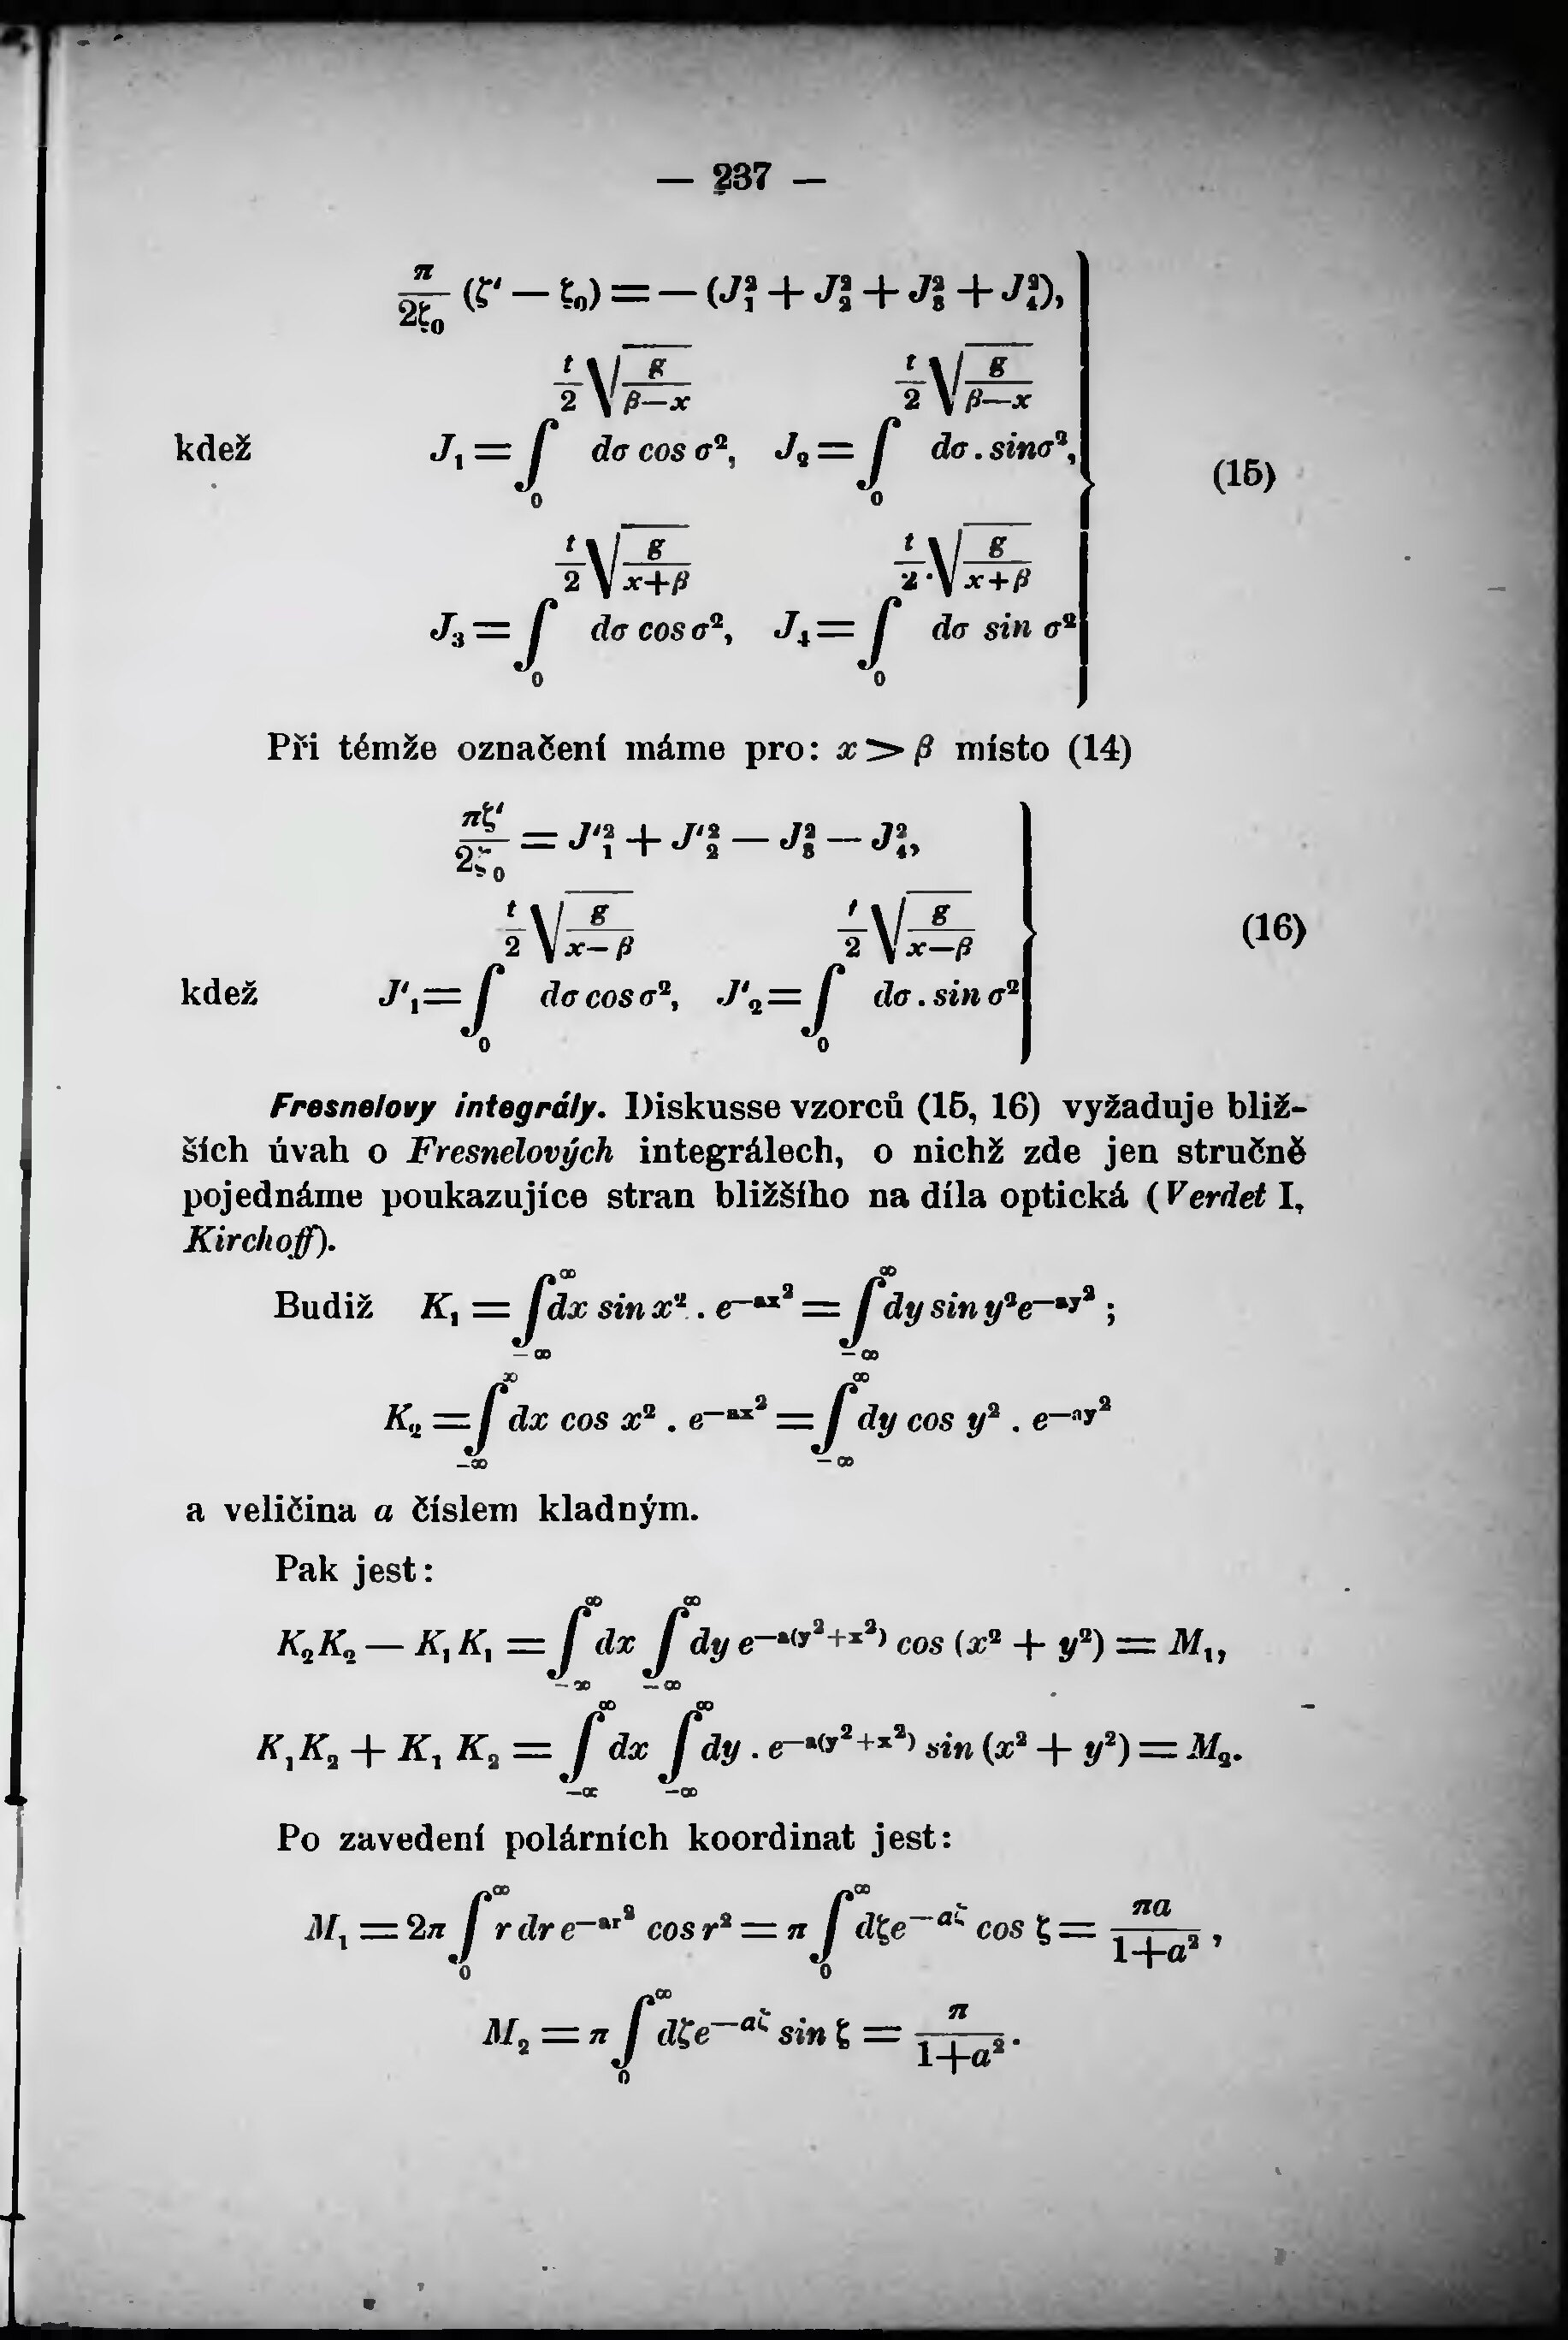 — 237 —
π/2ζ₀ (ζ′ — ζ₀) = — (J₁² + J₂² + J₃² + J₄²),
kdež J₁ = ∫₀^{t/2 √(g/(β—x))} dσ cos σ², J₂ = ∫₀^{t/2 √(g/(β—x))} dσ . sin σ², (15)
J₃ = ∫₀^{t/2 √(g/(x+β))} dσ cos σ², J₄ = ∫₀^{t/2 . √(g/(x+β))} dσ sin σ²
Při témže označení máme pro: x > β místo (14)
πζ′/2ζ₀ = J′₁² + J′₂² — J₃² — J₄²,
kdež J′₁ = ∫₀^{t/2 √(g/(x—β))} dσ cos σ², J′₂ = ∫₀^{t/2 √(g/(x—β))} dσ . sin σ² (16)
Fresnelovy integrály. Diskusse vzorců (15, 16) vyžaduje bliž-
ších úvah o Fresnelových integrálech, o nichž zde jen stručně
pojednáme poukazujíce stran bližšího na díla optická (Verdet I,
Kirchoff).
Budiž K₁ = ∫_{—∞}^{∞} dx sin x² . e^{—ax²} = ∫_{—∞}^{∞} dy sin y² e^{—ay²} ;
K₂ = ∫_{—∞}^{∞} dx cos x² . e^{—ax²} = ∫_{—∞}^{∞} dy cos y² . e^{—ay²}
a veličina a číslem kladným.
Pak jest:
K₂K₂ — K₁K₁ = ∫_{—∞}^{∞} dx ∫_{—∞}^{∞} dy e^{—a(y²+x²)} cos (x² + y²) = M₁,
K₁K₂ + K₁ K₂ = ∫_{—∞}^{∞} dx ∫_{—∞}^{∞} dy . e^{—a(y²+x²)} sin (x² + y²) = M₂.
Po zavedení polárních koordinat jest:
M₁ = 2π ∫₀^{∞} r dr e^{—ar²} cos r² = π ∫₀^{∞} dζe^{—aζ} cos ζ = πa/(1+a²) ,
M₂ = π ∫₀^{∞} dζe^{—aζ} sin ζ = π/(1+a²) .